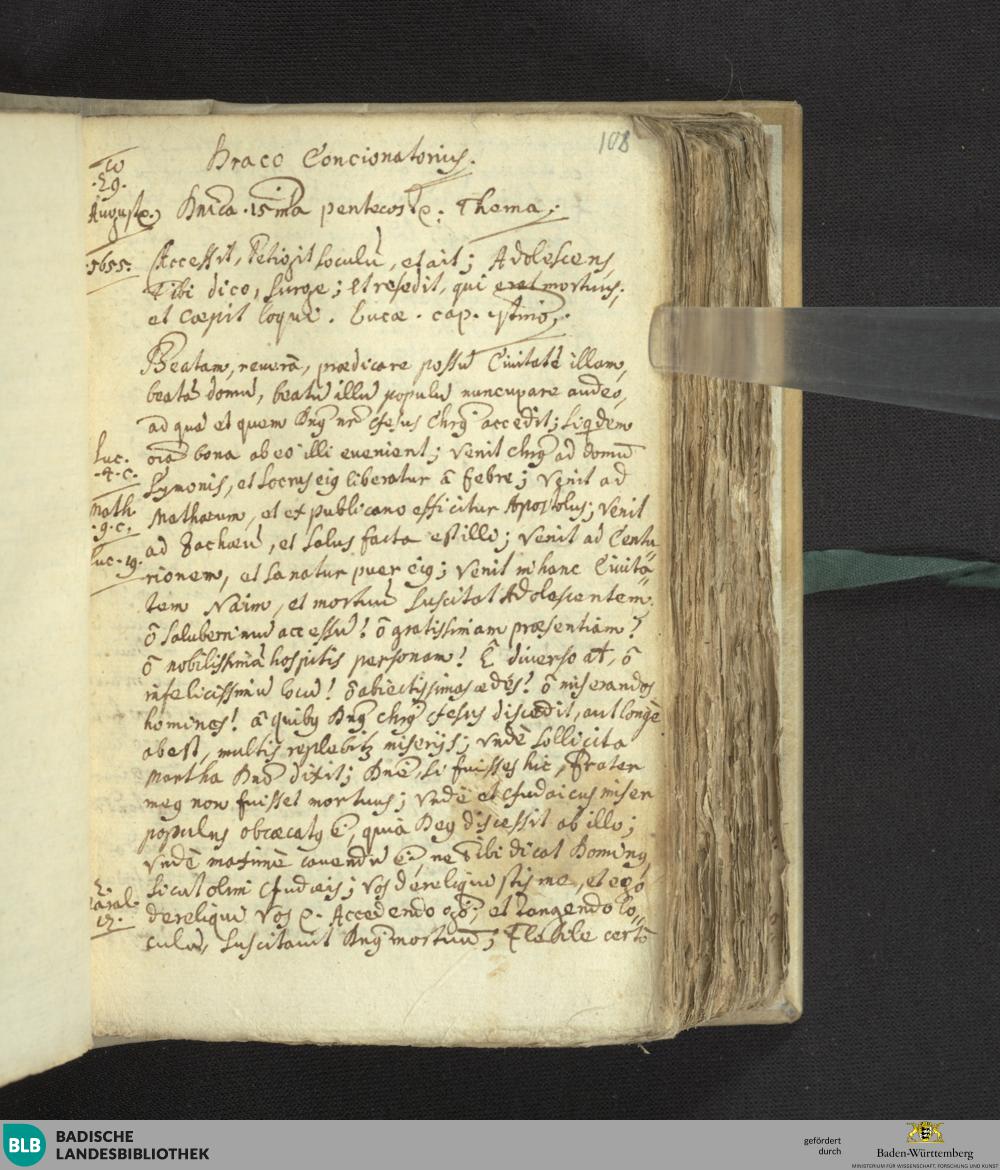 108
Draco Concionatorius.
29.
Augusti
1655.
Dnica .15 ma pentecostes. Thema;
Accessit, Tetigit loculū, et ait; Adolescens,
Tibi dico, surge; et resedit, qui erat mortuus,
et coepit loqui. Lucae. cap. 7timo.
Beatam, reverà, praedicare possū Civitatē illam,
beatā domū, beatū illū populū nuncupare audeo,
ad quā et quem Dn9 nr Jesus Chrs accedit; siqdem
oia bona ab eo illi evenient; venit Chrs ad domū
Luc.
.4.c.
Symonis, et socrus ei9 liberatur à febre; venit ad
Math
.9.c.
Mathaeum, et ex publicano efficitur Apostolus; venit
ad Zachaeū, et salus facta est illi; venit ad Centu
Luc. 19.
rionem, et sanatur puer ei9; venit in hanc Civita
tem Naim, et mortuū suscitat Adolescentem.
ô saluberrimū accessū! ô gratissimam praesentiam!
ô nobilissimā hospitis personam! È diverso at, ô
infelicissimū locū! ô abiectissimas aedes! ô miserandos
homines! à quib9 Dn9 Chrs Jesus discedit, aut longè
abest, multis replebitz miserijs; undè sollicita
Martha Dno dixit; Dnē, si fuisses hic, Frater
me9 non fuisset mortuus; undè et Judaicus miser
populus obcaecat9 ē, quia De9 discessit ab illo;
undè maximè cavendū ē, ne tibi dicat Domin9
sicut olim Judaeis; vos dereliquistis me, et ego
2.
Paral.
12.
dereliqui vos &. Accedendo , et tangendo lo
culū, suscitavit Dn9 mortuū; Flebile certè
BLB BADISCHE
LANDESBIBLIOTHEK
gefördert
durch
Baden-Württemberg
MINISTERIUM FÜR WISSENSCHAFT, FORSCHUNG UND KUNST